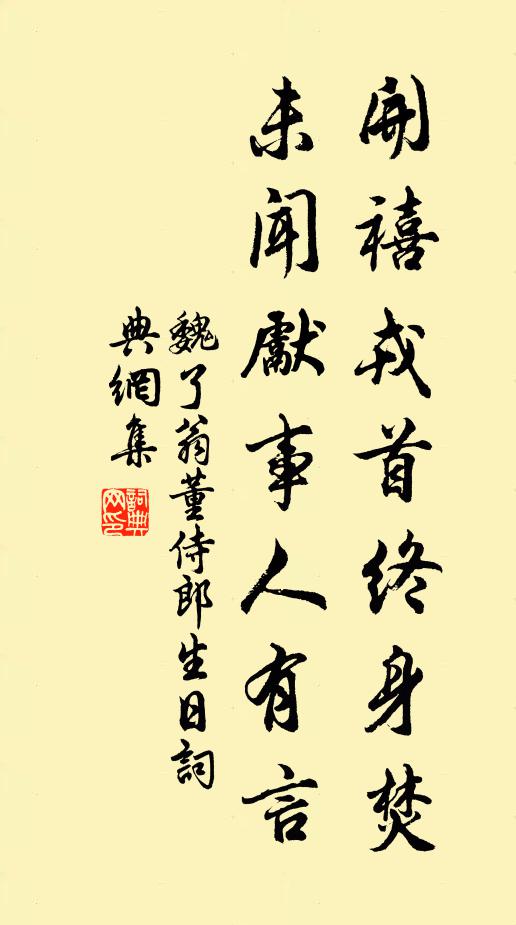 開禧戎首終身焚
未聞獻事人有言
魏了翁董侍郎生日詞
典網集
詞典
网印